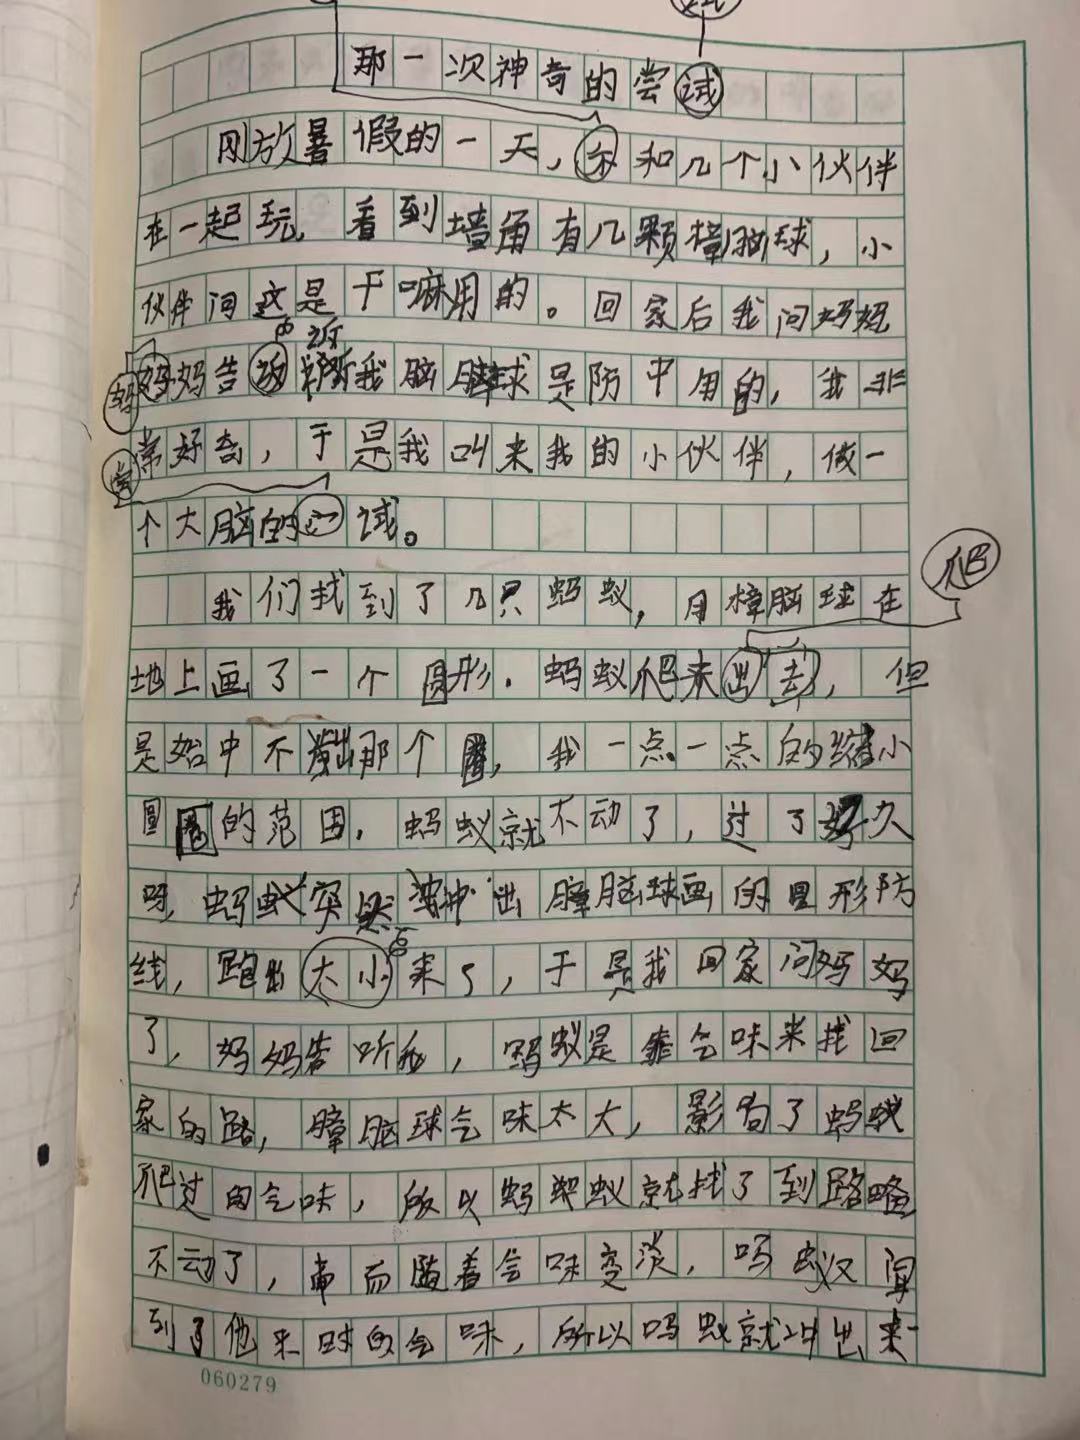 那一次神奇的尝试
刚放暑假的一天,我和几个小伙伴
在一起玩,看到墙角有几颗樟脑球,小
伙伴问这是干嘛用的。回家后我问妈妈
妈妈告诉我脑球是防中用的,我非
常好奇,于是我叫来我的小伙伴,做一
个大脑的尝试。
爬
我们找到了几只蚂蚁,用樟脑球在
地上画了一个圆形.蚂蚁爬来出去,但
是始中不出那个圈,我一点一点的缩小
圆圈的范围,蚂蚁就不动了,过了好久
吗,蚂蚁突然冲出膧脑球画的圆形防
线,跑出来了,于是我回家问妈妈
了,妈妈告听我,蚂蚁是靠气味来找回
家的路,膧脑球气味太大,影向了蚂蚁
爬过的气味,所以蚂蚁就找了到路
不动了,而随着气味变淡,吗蚁又闻
到了他来时的气味,所以吗蚁就冲出来
060279